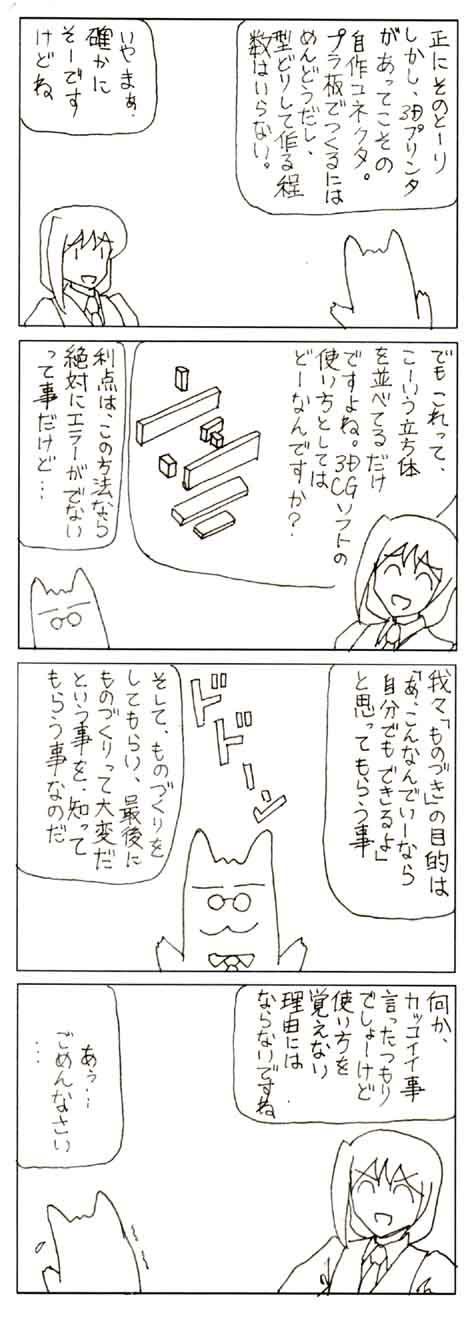 正にそのとーり
しかし、3Dプリンタ
があってこその
自作コネクタ。
プラ板でつくるには
めんどうだし、
型どりして作る程
数はいらない。
いやまぁ、
確かに
そーです
けどね
でもこれって、
こーいう立ち体
を並べてるだけ
ですよね。3DCGソフトの
使い方としては
どーなんですか?
利点は、この方法なら
絶対にエラーがでない
って事だけど…
我々「ものづき」の目的は
「あ、こんなんでいーなら
自分でもできるよ」
と思ってもらう事
ドドーン
そして、ものづくりを
してもらい、最後に
ものづくりって大変だ
という事を、知って
もらう事なのだ
何か、
カッコイイ事
言ったつもり
でしょーけど
使い方を
覚えない
理由には
ならないですね
あぅ…
ごめんなさい
…